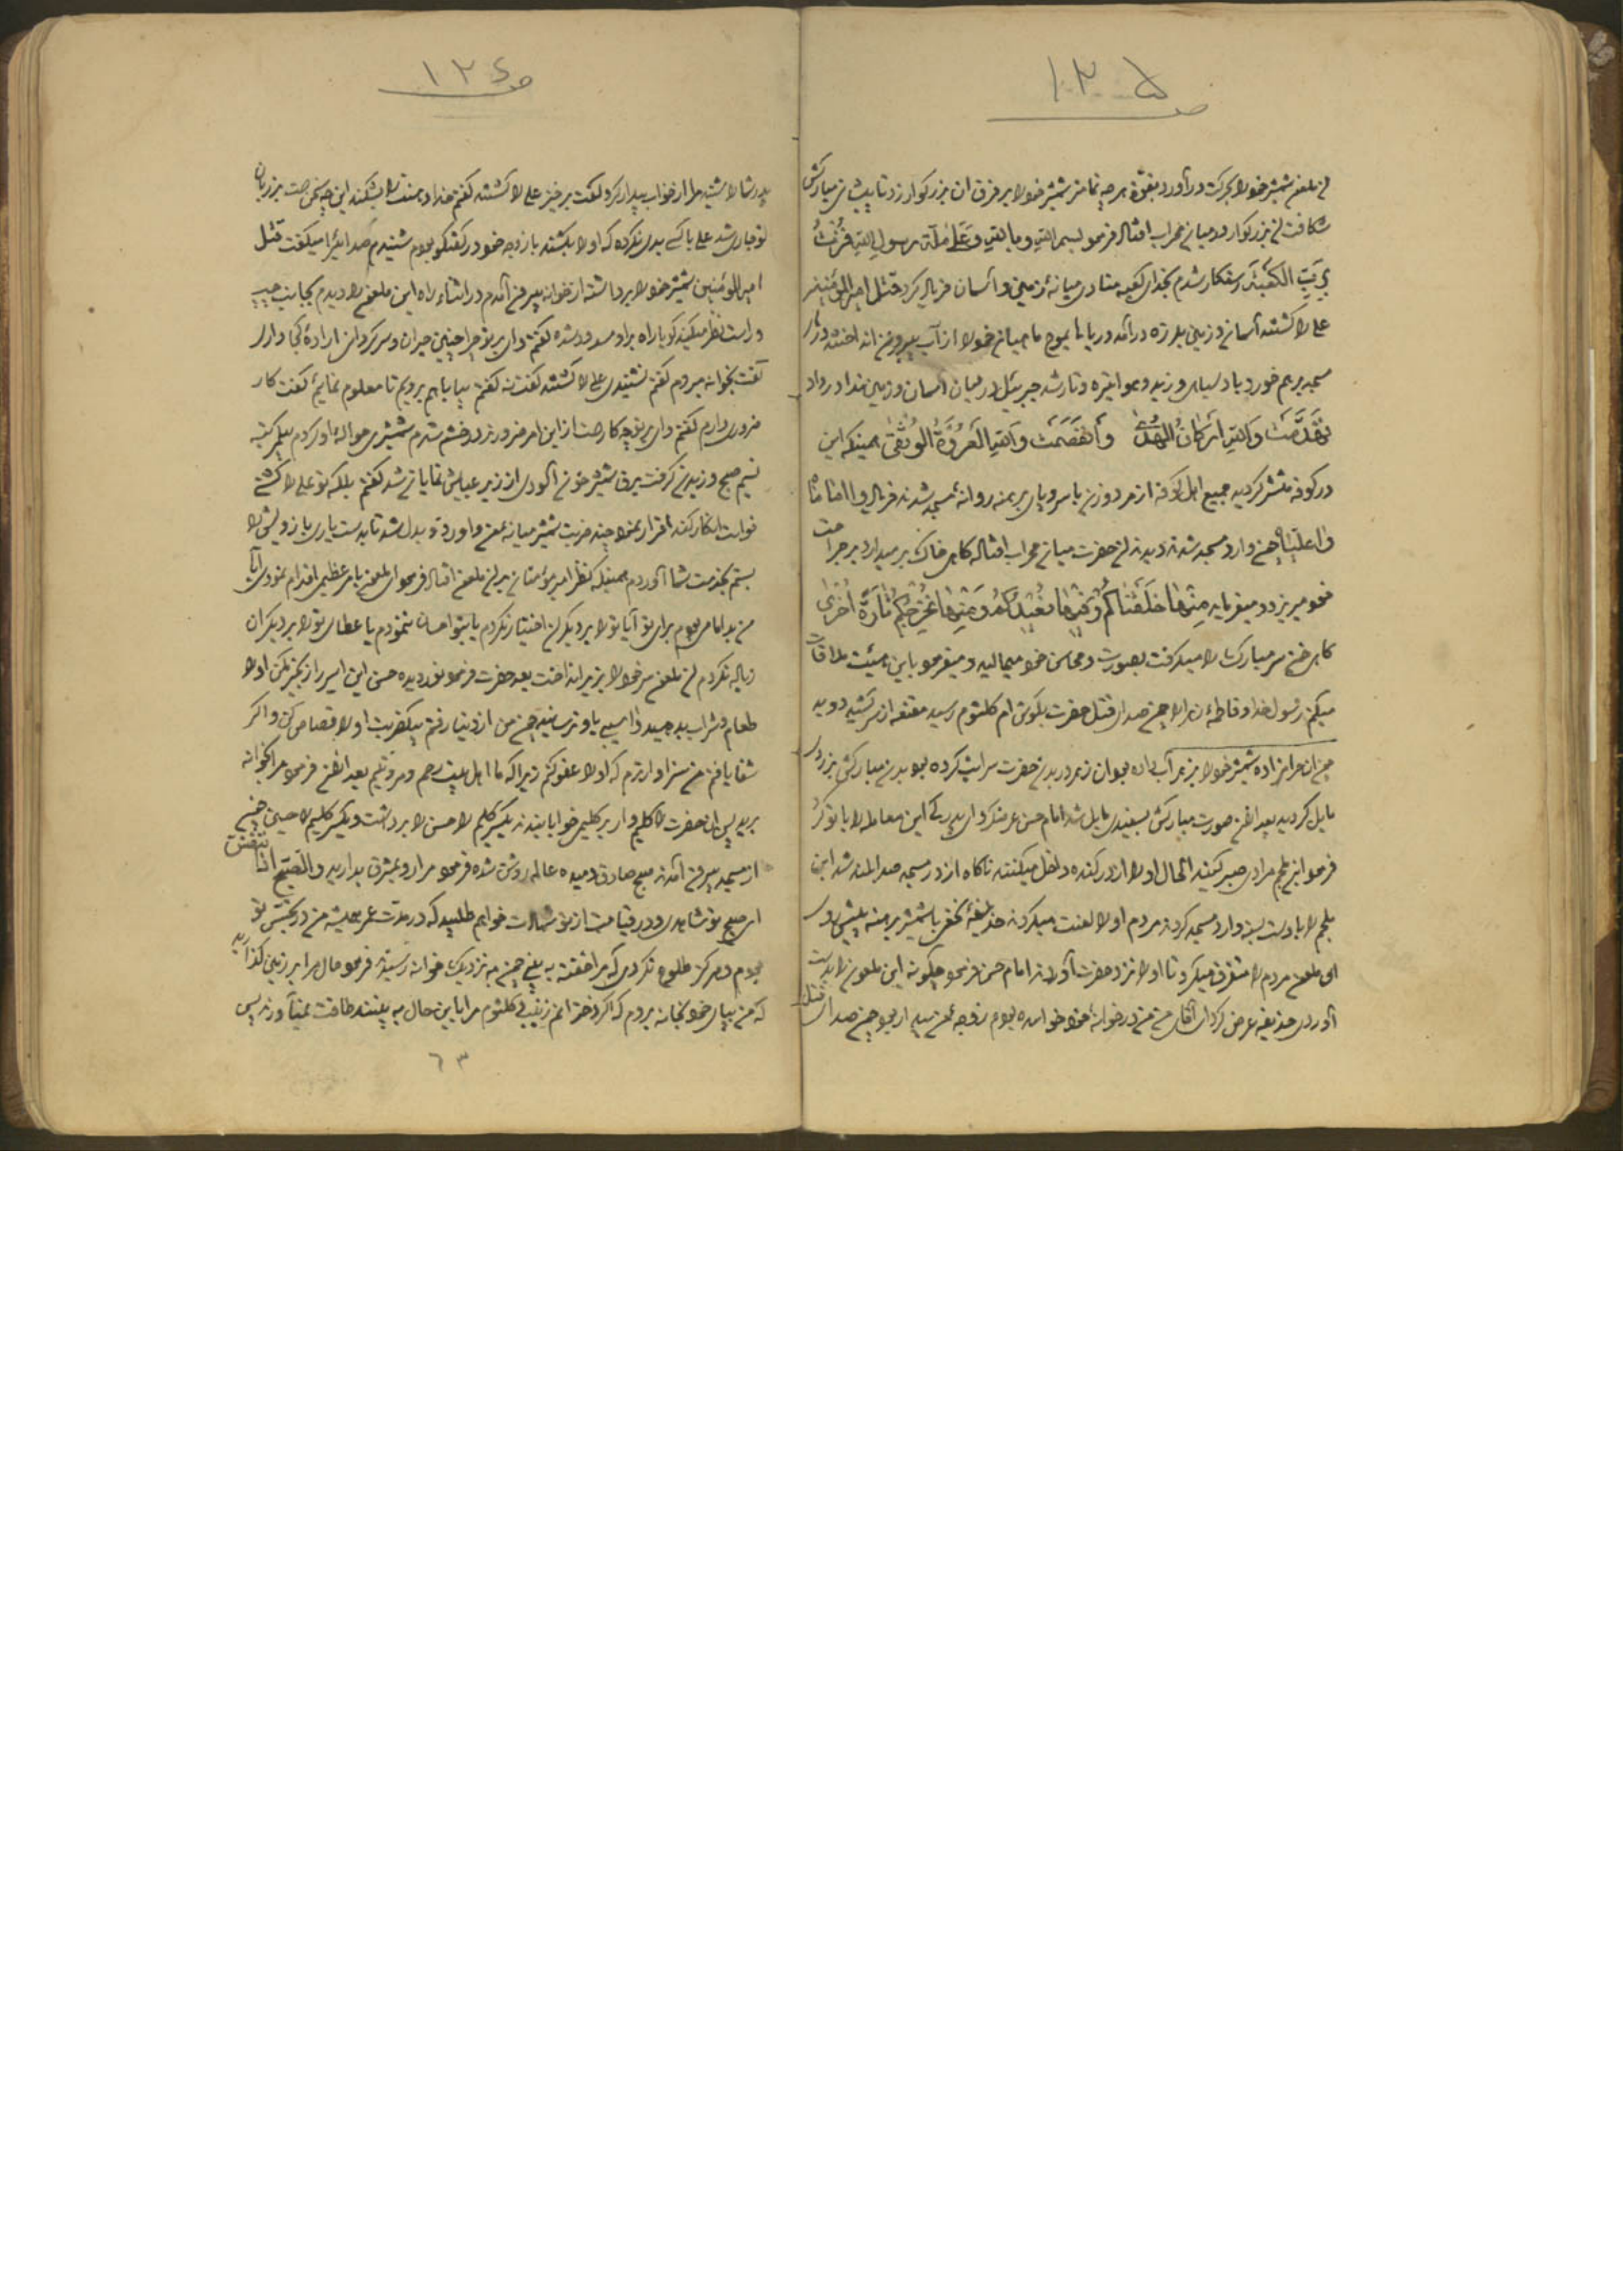 ص ۱۳۵
ان ملعون شمشیر خود را بحرکت درآورد بقوّة هر چه تمامتر شمشیر خود را بر فرق ان بزرکوار زد تا پیشانی مبارکش
شکافت ان بزرکوار در میان محراب افتاد فرمود بسم الله و بالله و علی ملة رسول الله فزت
برب الکعبة رستکار شدم بخدای کعبه منادی میانهٔ زمین و آسمان فریاد کرد قتل امیر المؤمنین
علی را کشتند آسمان و زمین بلرزه درآمد دریاها بموج ماهیان خود را از آب بیرون انداختند در
مسجد بر هم خورد باد سیاهی وزید و هوا تیره و تار شد جبرئیل در میان آسمان و زمین ندا در داد
تهدمت والله ارکان الهدی وانفصمت والله العروة الوثقی همینکه این
در کوفه منتشر کردید جمیع اهل کوفه از مرد و زن با سر و پای برهنه روانهٔ مسجد شدند فریاد وا اماماه
وا علیّاه چون وارد مسجد شدند دیدند ان حضرت میان محراب افتاده کاهی خاک بر میدارد بر جراحت
خود میریزد و میفرماید منها خلقناکم وفیها نعیدکم ومنها نخرجکم تارة اخری
کاهی خون سر مبارکش را میکرفت بصورت و محاسن خود میمالید و میفرمود باین هیئت ملاقات
میکنم رسول خدا و فاطمهٔ زهرا را چون صدای قتل حضرت بکوش ام کلثوم رسید مقنعه از سر کشید دوید
چون ان حرامزاده شمشیر خود را بزهر آب داده بود ان زهر در بدن حضرت سرایت کرده بود بدن مبارکش بزردی
مایل کردید بعد از خون صورت مبارکش بسفیدی مایل شد امام حسن عرض کرد ای پدر که این معامله را با تو کرد
فرمود ابن ملجم مرادی صبر کنید الحال او را از در کنده داخل میکنند ناکاه از در مسجد صدا بلند شد ابن
ملجم را با دست بسته وارد مسجد کردند مردم او را لعنت میکردند حذیفهٔ نخعی با شمشیر برهنه پیش روی
ان ملعون مردم را متفرق میکرد تا او را نزد حضرت آوردند امام حسن فرمود چکونه این ملعون را بدست
آوردی حذیفه عرض کرد ای آقای من من در خوانهٔ خود خوابیده بودم زوجه من بیدار بود چون صدای قتل
ص ۱۳۶
پدر شما را شنید مرا از خواب بیدار کرد کفت برخیز علی را کشتند کفتم خدا دهنت را بشکند این چه سخن است بر زبان
تو جاری شد علی با کسی بدی نکرده که او را بکشند با زوجه خود در کفتکو بودم شنیدم صدائیرا میکفت قتل
امیر المؤمنین شمشیر خود را برداشته از خوانه بیرون آمدم در اثناء راه این ملعون را دیدم بجانب چپ
و راست نظر میکند کویا راه بر او مسدود شده کفتم وای بر تو چرا چنین حیران و سرکردانی ارادهٔ کجا داری
کفت بخوانه میروم کفتم نشنیدی علی را کشتند کفت نه کفتم بیا با هم برویم تا معلوم نمایم کفت کار
ضروری دارم کفتم وای بر تو چه کار است از این امر ضرورتر در خشم شدم شمشیری حوالهٔ او کردم
نسیم صبح وزیدن کرفت برق شمشیر خون آلودی از زیر عبایش نمایان شد کفتم بلکه تو علی را کشتهٔ
خواست انکار کند اقرار نمود چند ضربت شمشیر میانه من و او رد و بدل شد تا بدست یاری بازویش را
بستم بخدمت شما آوردم همینکه نظر امیر مؤمنان بر ان ملعون افتاد فرمود ای ملعون بامر عظیمی اقدام نمودی آیا
من بد امامی بودم برای تو آیا تو را بر دیکران اختیار نکردم یا بتو احسان ننمودم یا عطای تو را بر دیکران
زیاد نکردم ان ملعون سر خود را بزیر انداخت بعد حضرت فرمود نور دیده حسن این اسیر را زنجیر مکن او را
طعام و شراب بدهید و اسیبی باو نرسانید چون من از دنیا رفتم بیک ضربت او را قصاص کن و اکر
شفا یافتم من سزاوارترم که او را عفو کنم زیرا که ما اهل بیت رحم و مروتیم بعد از ان فرمود مرا بخوانه
برید پس ان حضرت را کلیم وار بر کلیمی خوابانیدند یکسر کلیم را حسن را برداشت و یکسر کلیم را حسین چون
از مسجد بیرون آمدند صبح صادق دمیده عالم روشن شده فرمود مرا رو بمشرق بدارید والصبح اذا تنفس
ای صبح تو شاهدی و در قیامت از تو شهادت خواهم طلبید که در مدّت عمر همیشه من در جستجوی تو
بودم و هرکز طلوع نکردی که مرا خفته به بینی چون به نزدیک خوانه رسیدند فرمود حال مرا بر زمین کذارید
که من بپای خود بخانه بروم که اکر دخترانم زینب و کلثوم مرا باین حال به بینند طاقت نمیآورند پس
٦٣